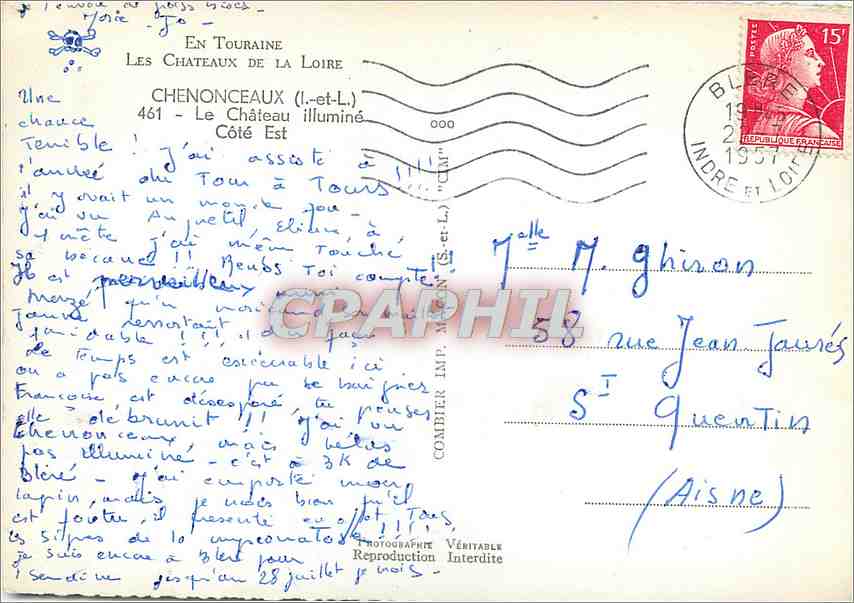 je t'envoie de gros bises -
Marie - Jo -
EN TOURAINE
LES CHATEAUX DE LA LOIRE
CHENONCEAUX (I.-et-L.)
461 - Le Château illuminé
Côté Est
Une
chance
Terrible ! j'ai assisté à
l'arrivée du Tour à Tours !!!!
il y avait un monde fou -
j'ai vu Anquetil,
j'ai même Touché
sa bécane !! Rends Toi compte !!
Il est
bronzé, qu'un maillot
jaune ressortait d'une façon
formidable !!!!
de Temps est exécrable ici
on a pas encore pu se baigner
Françoise est désespérée, tu penses
elle débrunit !! J'ai vu
Chenonceaux, mais hélas
pas illuminé - c'est à 3K de
Bléré - J'ai emporté mon
lapin, mais je crois bien qu'il
est foutu, il présente Tous
les signes de la !!!!!
je suis encore à Bléré pour
1 semaine jusqu'au 28 juillet je crois -
COMBIER IMP. MACON (S.-et-L.) "CIM"
CPAPHIL
PHOTOGRAPHIE VÉRITABLE
Reproduction Interdite
POSTES
15F
REPUBLIQUE FRANÇAISE
BLERE
1957
INDRE ET LOIRE
Melle M. Ghiron
58 rue Jean Jaurés
St Quentin
(Aisne)